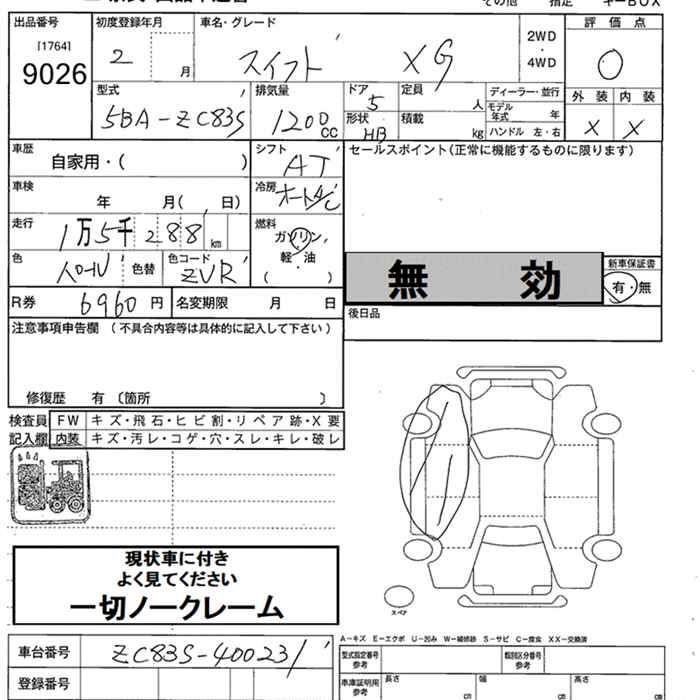 その他 指定 キーBOX
出品番号 初度登録年月 車名・グレード 評価点
[1764]
9026 2 月 スイフト XG 2WD 4WD 0
型式 排気量 ドア 定員 ディーラー・並行 外装 内装
5BA-ZC83S 1200CC 5 人 モデル年式 年 X X
形状 HB 積載 kg ハンドル 左・右
車歴 シフト セールスポイント(正常に機能するものに限ります)
自家用・( ) AT
車検 冷房
年 月( 日) オートA/C
走行 燃料
1万5千288 km ガソリン
軽・油
( )
色 色替 色コード 無効 新車保証書
ZVR 有・無
R券 6960円 名変期限 月 日 後日品
注意事項申告欄 (不具合内容等は具体的に記入して下さい)
修復歴 有 〔箇所 〕
検査員 FW キズ・飛石・ヒビ割・リペア跡・X要
記入欄 内装 キズ・汚レ・コゲ・穴・スレ・キレ・破レ
現状車に付き
よく見てください
一切ノークレーム
スペア
A-キズ E-エクボ U-凹み W-補修跡 S-サビ C-腐食 XX-交換済
車台番号 ZC83S-400231
型式指定番号 参考 類別区分番号 参考
登録番号 車庫証明用 参考 長さ cm 幅 cm 高さ cm